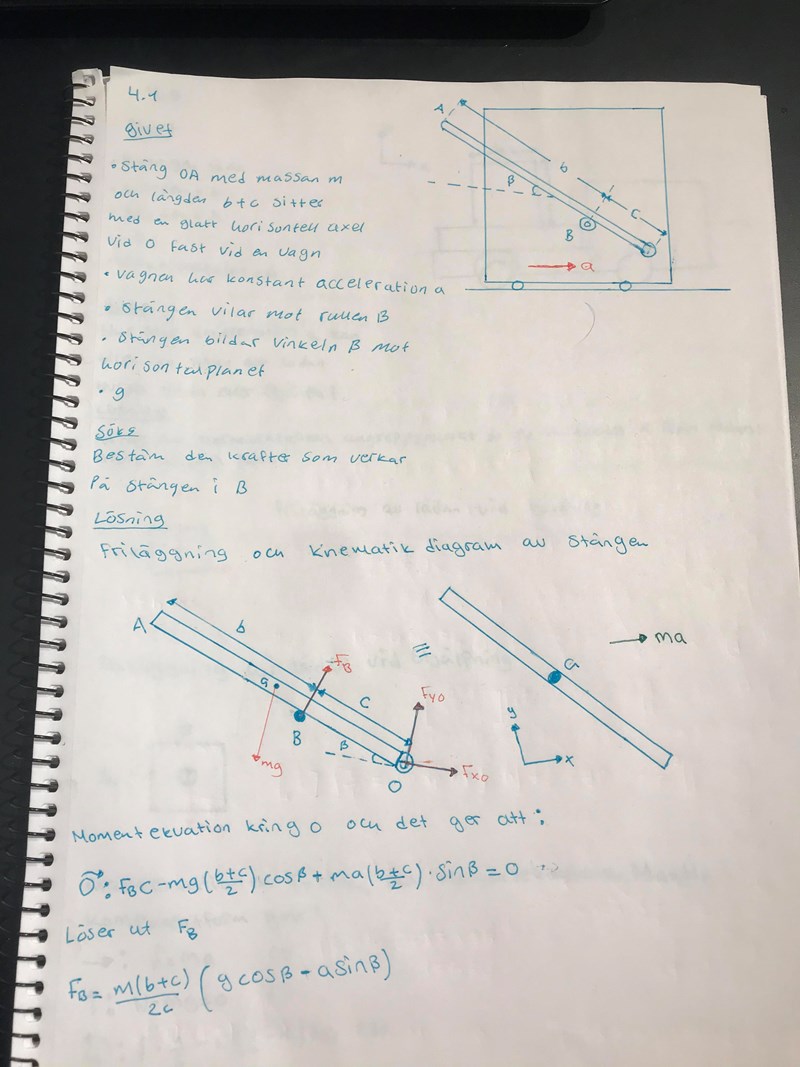 4.1
Givet
• Stång OA med massan m
och längden b+c sitter
med en glatt horisontell axel
vid O fast vid en vagn
• vagnen har konstant acceleration a
• Stången vilar mot rullen B
• Stången bildar vinkeln β mot
horisontalplanet
• g
A
b
β
c
B
a
Söks
Bestäm den krafter som verkar
på stången i B
Lösning
Friläggning och kinematik diagram av stången
A
b
FB
G
c
B
β
mg
Fyo
Fxo
O
≡
G
ma
y
x
Momentekvation kring O och det ger att:
O: FBC - mg(b+c/2) cosβ + ma(b+c/2) · sinβ = 0
Löser ut FB
FB = m(b+c)/2c (g cosβ - a sinβ)